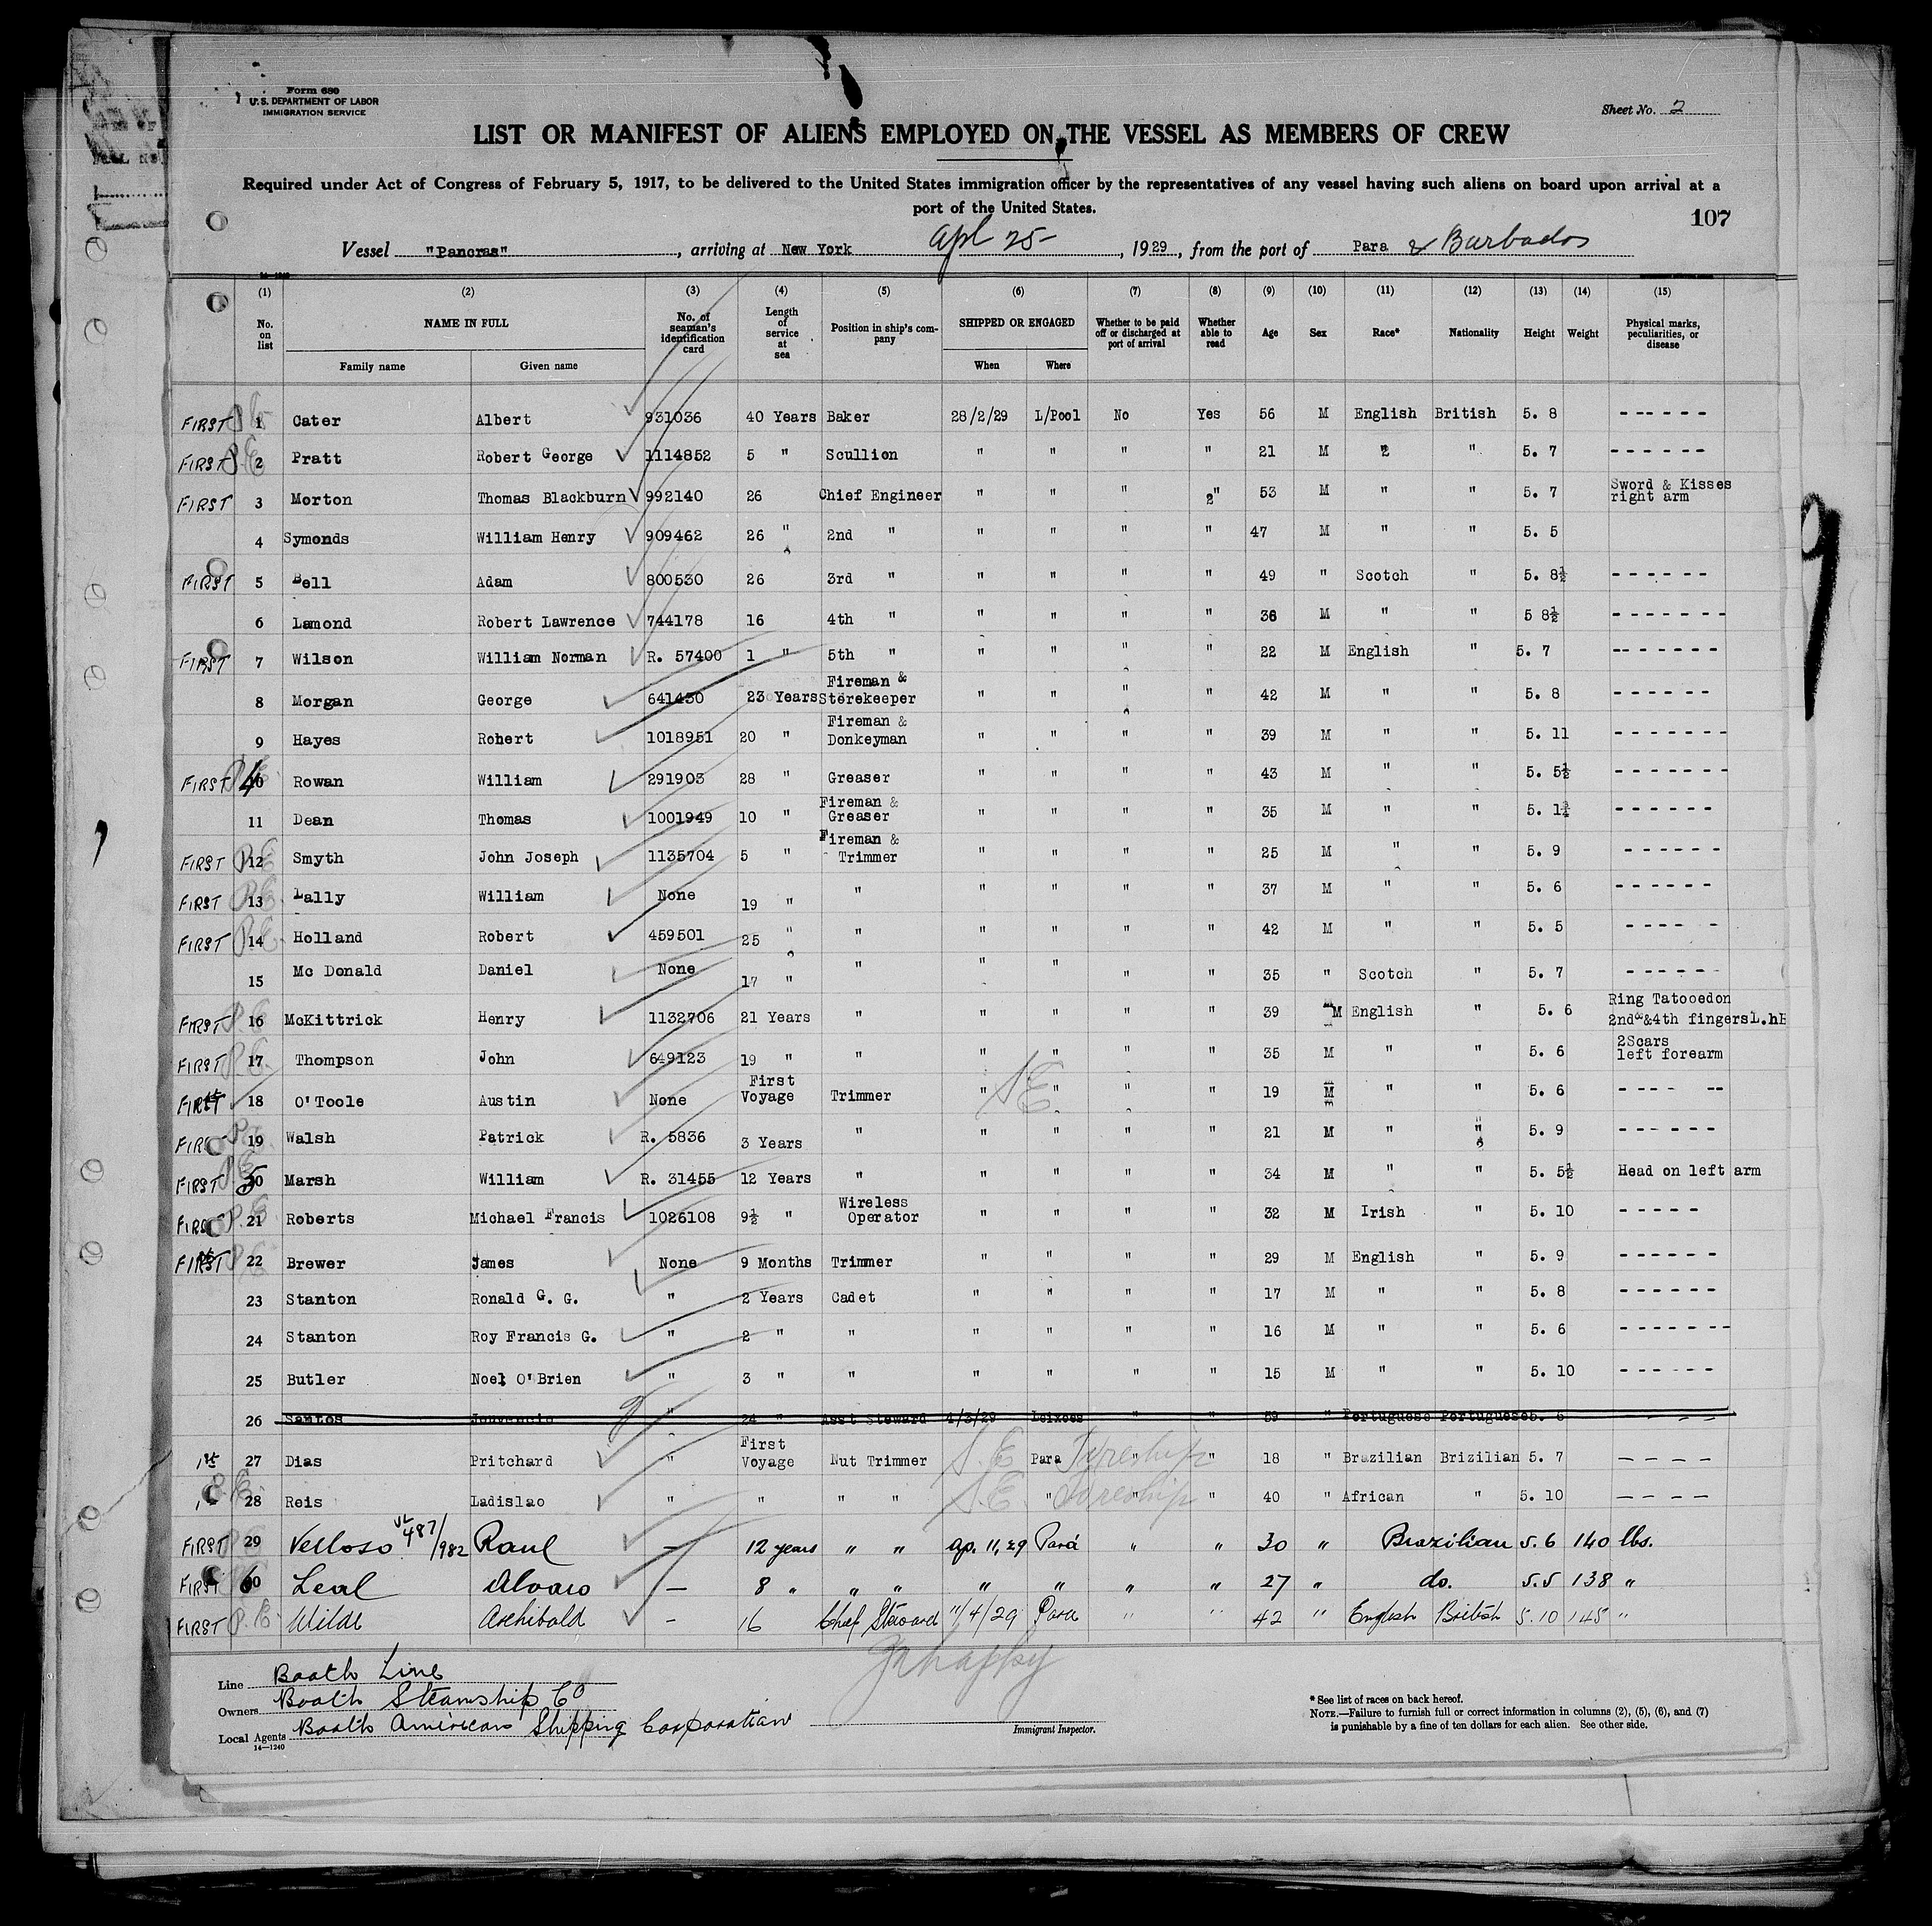 Form 680
U. S. DEPARTMENT OF LABOR
IMMIGRATION SERVICE
Sheet No. 2
LIST OR MANIFEST OF ALIENS EMPLOYED ON THE VESSEL AS MEMBERS OF CREW
Required under Act of Congress of February 5, 1917, to be delivered to the United States immigration officer by the representatives of any vessel having such aliens on board upon arrival at a
port of the United States.
107
Vessel "Pancras", arriving at New York Apl 25-, 1929, from the port of Para & Barbados
(1) (2) (3) (4) (5) (6) (7) (8) (9) (10) (11) (12) (13) (14) (15)
No. on list NAME IN FULL No. of seaman's identification card Length of service at sea Position in ship's company SHIPPED OR ENGAGED Whether to be paid off or discharged at port of arrival Whether able to read Age Sex Race* Nationality Height Weight Physical marks, peculiarities, or disease
Family name Given name When Where
FIRST 1 Cater Albert 931036 40 Years Baker 28/2/29 L/Pool No Yes 56 M English British 5. 8 ------
FIRST P.E. 2 Pratt Robert George 1114852 5 " Scullion " " " " 21 M " " 5. 7 ------
FIRST 3 Morton Thomas Blackburn 992140 26 Chief Engineer " " " " 53 M " " 5. 7 Sword & Kisses right arm
4 Symonds William Henry 909462 26 " 2nd " " " " " 47 M " " 5. 5
FIRST 5 Bell Adam 800530 26 3rd " " " " " 49 " Scotch " 5. 8½ ------
6 Lamond Robert Lawrence 744178 16 4th " " " " " 36 M " " 5 8½ -------
FIRST 7 Wilson William Norman R. 57400 1 " 5th " " " " " 22 M English " 5. 7 -------
8 Morgan George 641430 23 Years Fireman & Storekeeper " " " " 42 M " " 5. 8 ------
9 Hayes Robert 1018951 20 " Fireman & Donkeyman " " " " 39 M " " 5. 11 -------
FIRST 10 Rowan William 291903 28 " Greaser " " " " 43 M " " 5. 5½ -------
11 Dean Thomas 1001949 10 " Fireman & Greaser " " " " 35 M " " 5. 1½ ------
FIRST P.E. 12 Smyth John Joseph 1135704 5 " Fireman & Trimmer " " " " 25 M " " 5. 9 ------
FIRST P.E. 13 Lally William None 19 " " " " " " 37 M " " 5. 6 ------
FIRST P.E. 14 Holland Robert 459501 25 " " " " " " 42 M " " 5. 5 ---- -
15 Mc Donald Daniel None 17 " " " " " " 35 " Scotch " 5. 7 ------
FIRST P.E. 16 McKittrick Henry 1132706 21 Years " " " " " 39 M English " 5. 6 Ring Tatooedon 2nd&4th fingersL.hH
FIRST P.E. 17 Thompson John 649123 19 " " " " " " 35 M " " 5. 6 2Scars left forearm
FIRST 18 O'Toole Austin None First Voyage Trimmer " " " " 19 M " " 5. 6 ---- --
FIRST 19 Walsh Patrick R. 5836 3 Years " " " " " 21 M " " 5. 9 ------
FIRST P.E. 20 Marsh William R. 31455 12 Years " " " " " 34 M " " 5. 5½ Head on left arm
FIRST P.E. 21 Roberts Michael Francis 1026108 9½ " Wireless Operator " " " " 32 M Irish " 5. 10 -----
FIRST P.E. 22 Brewer James None 9 Months Trimmer " " " " 29 M English " 5. 9 ------
23 Stanton Ronald G. G. " 2 Years Cadet " " " " 17 M " " 5. 8 ------
24 Stanton Roy Francis G. " 2 " " " " " " 16 M " " 5. 6 -------
25 Butler Noel O'Brien " 3 " " " " " " 15 M " " 5. 10 -----
26 Santos Jouvencio " 24 " Asst Steward 4/3/29 Leixoes " " 39 " Portuguese Portuguese 5. 6 - - -
1st 27 Dias Pritchard " First Voyage Nut Trimmer S.E. Para " " 18 " Brazilian Brizilian 5. 7 ----
P.E. 28 Reis Ladislao " " " " S.E. " " " 40 " African " 5. 10 ----
FIRST 29 Velloso VL 487/982 Raul - 12 years " " Ap. 11, 29 Pará " " 30 " Brazilian 5.6 140 lbs.
FIRST 30 Leal Alvaro - 8 " " " " " " " 27 " do. 5.5 138 "
FIRST P.E. Wilde Archibald - 16 Chief Steward 11/4/29 Para " " 42 " English British 5.10 145 "
Line Booth Line
Owners Booth Steamship Co
Local Agents Booth American Shipping Corporation
14—1240
Immigrant Inspector.
* See list of races on back hereof.
NOTE.—Failure to furnish full or correct information in columns (2), (5), (6), and (7)
is punishable by a fine of ten dollars for each alien. See other side.